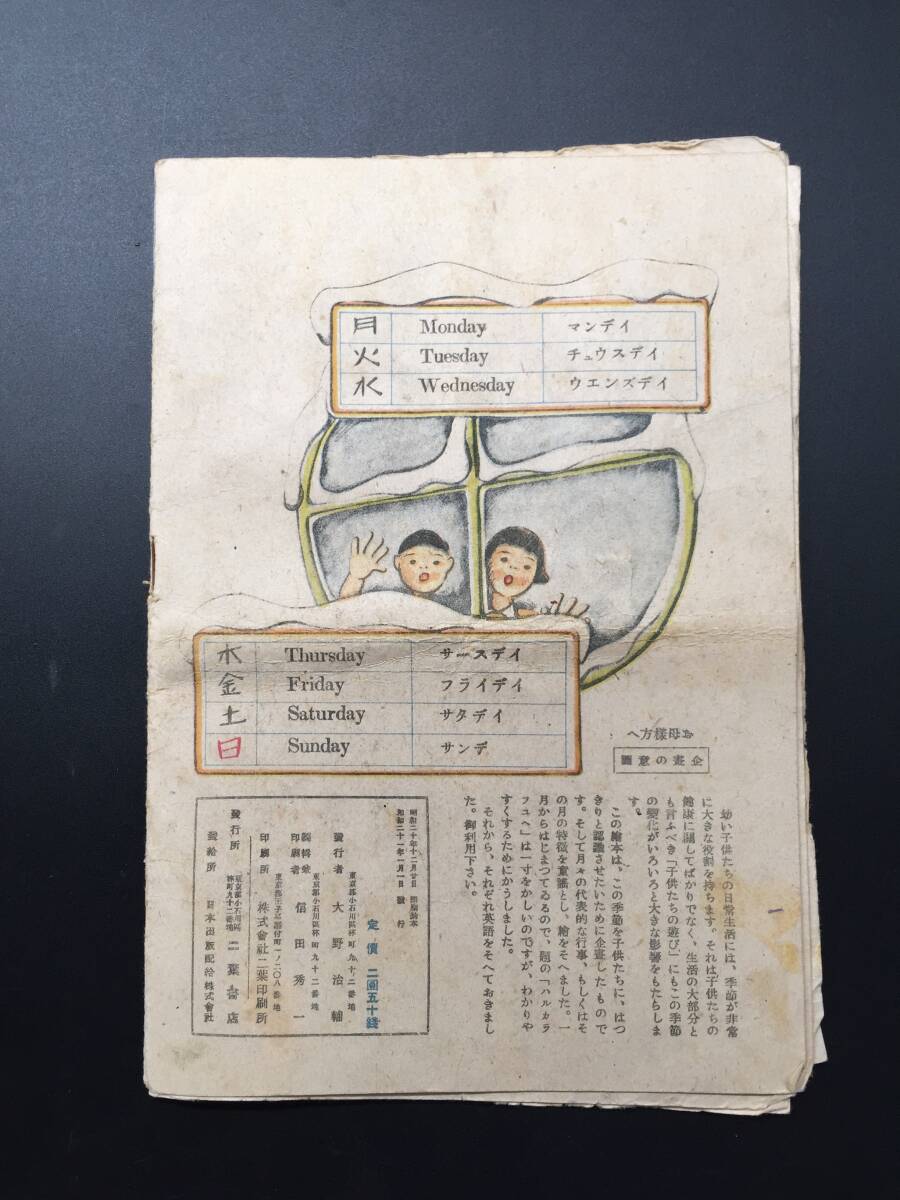 月 Monday マンデイ
火 Tuesday チュウスデイ
水 Wednesday ウエンズデイ
木 Thursday サースデイ
金 Friday フライデイ
土 Saturday サタデイ
日 Sunday サンデ
お母様方へ
企畫の意圖
幼い子供たちの日常生活には、季節が非常
に大きな役割を持ちます。それは子供たちの
健康に關してばかりでなく、生活の大部分と
も言ふべき「子供たちの遊び」にもこの季節
の變化がいろいろと大きな影響をもたらしま
す。
この繪本は、この季節を子供たちに、はつ
きりと認識させたいために企畫したもので
す。そして月々の代表的な行事、もしくはそ
の月の特徴を童謠とし、繪をそへました。一
月からはじまつてゐるので、題の「ハルカラ
フユヘ」は一寸をかしいのですが、わかりや
すくするためにかうしました。
それから、それぞれ英語をそへておきまし
た。御利用下さい。
定價 二圓五十錢
昭和二十年十二月廿日 印刷納本
昭和二十一年一月一日 發行
東京都小石川區林町九十二番地
發行者 大野治輔
東京都小石川區林町九十二番地
編輯兼印刷者 信田秀一
東京都王子區豊島町一ノ二〇八番地
印刷所 株式會社二葉印刷所
東京都小石川區林町九十二番地
發行所 二葉書店
發給所 日本出版配給株式會社